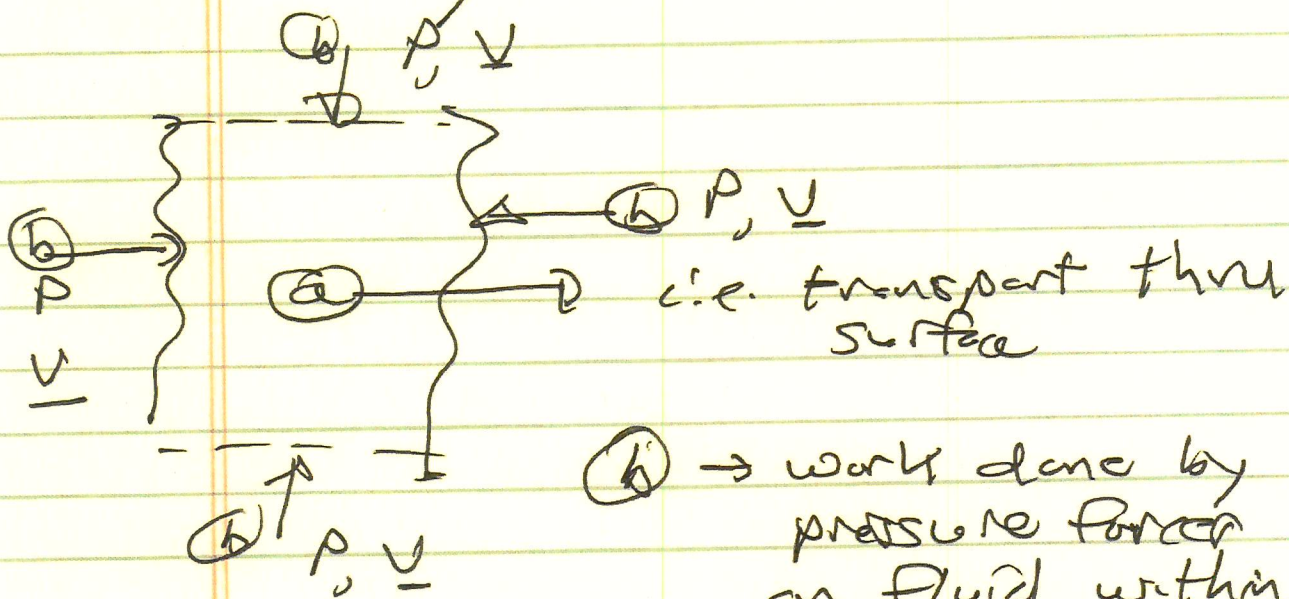 ⓑ P, V
ⓑ P, V
ⓑ
P
V
ⓐ i.e. transport thru
surface
ⓑ → work done by
pressure forces
ⓑ P, V
on fluid within